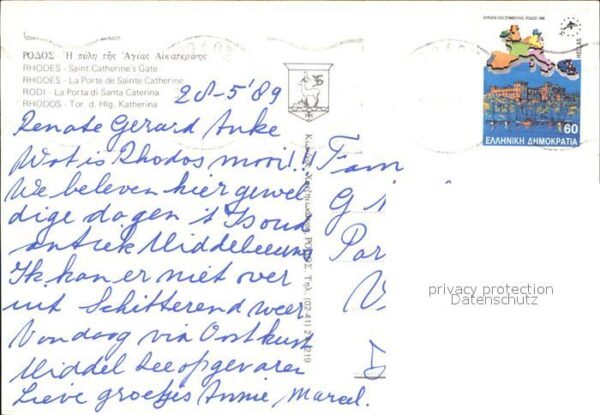 ΡΟΔΟΣ - Ἡ πύλη τῆς Ἁγίας Αἰκατερίνης
RHODES - Saint Catherine's Gate
RHODES - La Porte de Sainte Catherine
RODI - La Porta di Santa Caterina
RHODOS - Tor. d. Hlg. Katherina
28-5'89
Renate Gerard Anke
Wat is Rhodos mooi!!
We beleven hier gewel
dige dagen 't Is oud
antiek Middeleeuws
Ik kan er niet over
uit Schitterend weer
Vandaag via Oostkust
Middel Zee opgevaren
Lieve groetjes Annie, Marcel.
Fam
G
Par
V.
D
60
ΕΛΛΗΝΙΚΗ ΔΗΜΟΚΡΑΤΙΑ
HELLAS
ΡΟΔΟΣ Τηλ. (0241)
privacy protection
Datenschutz